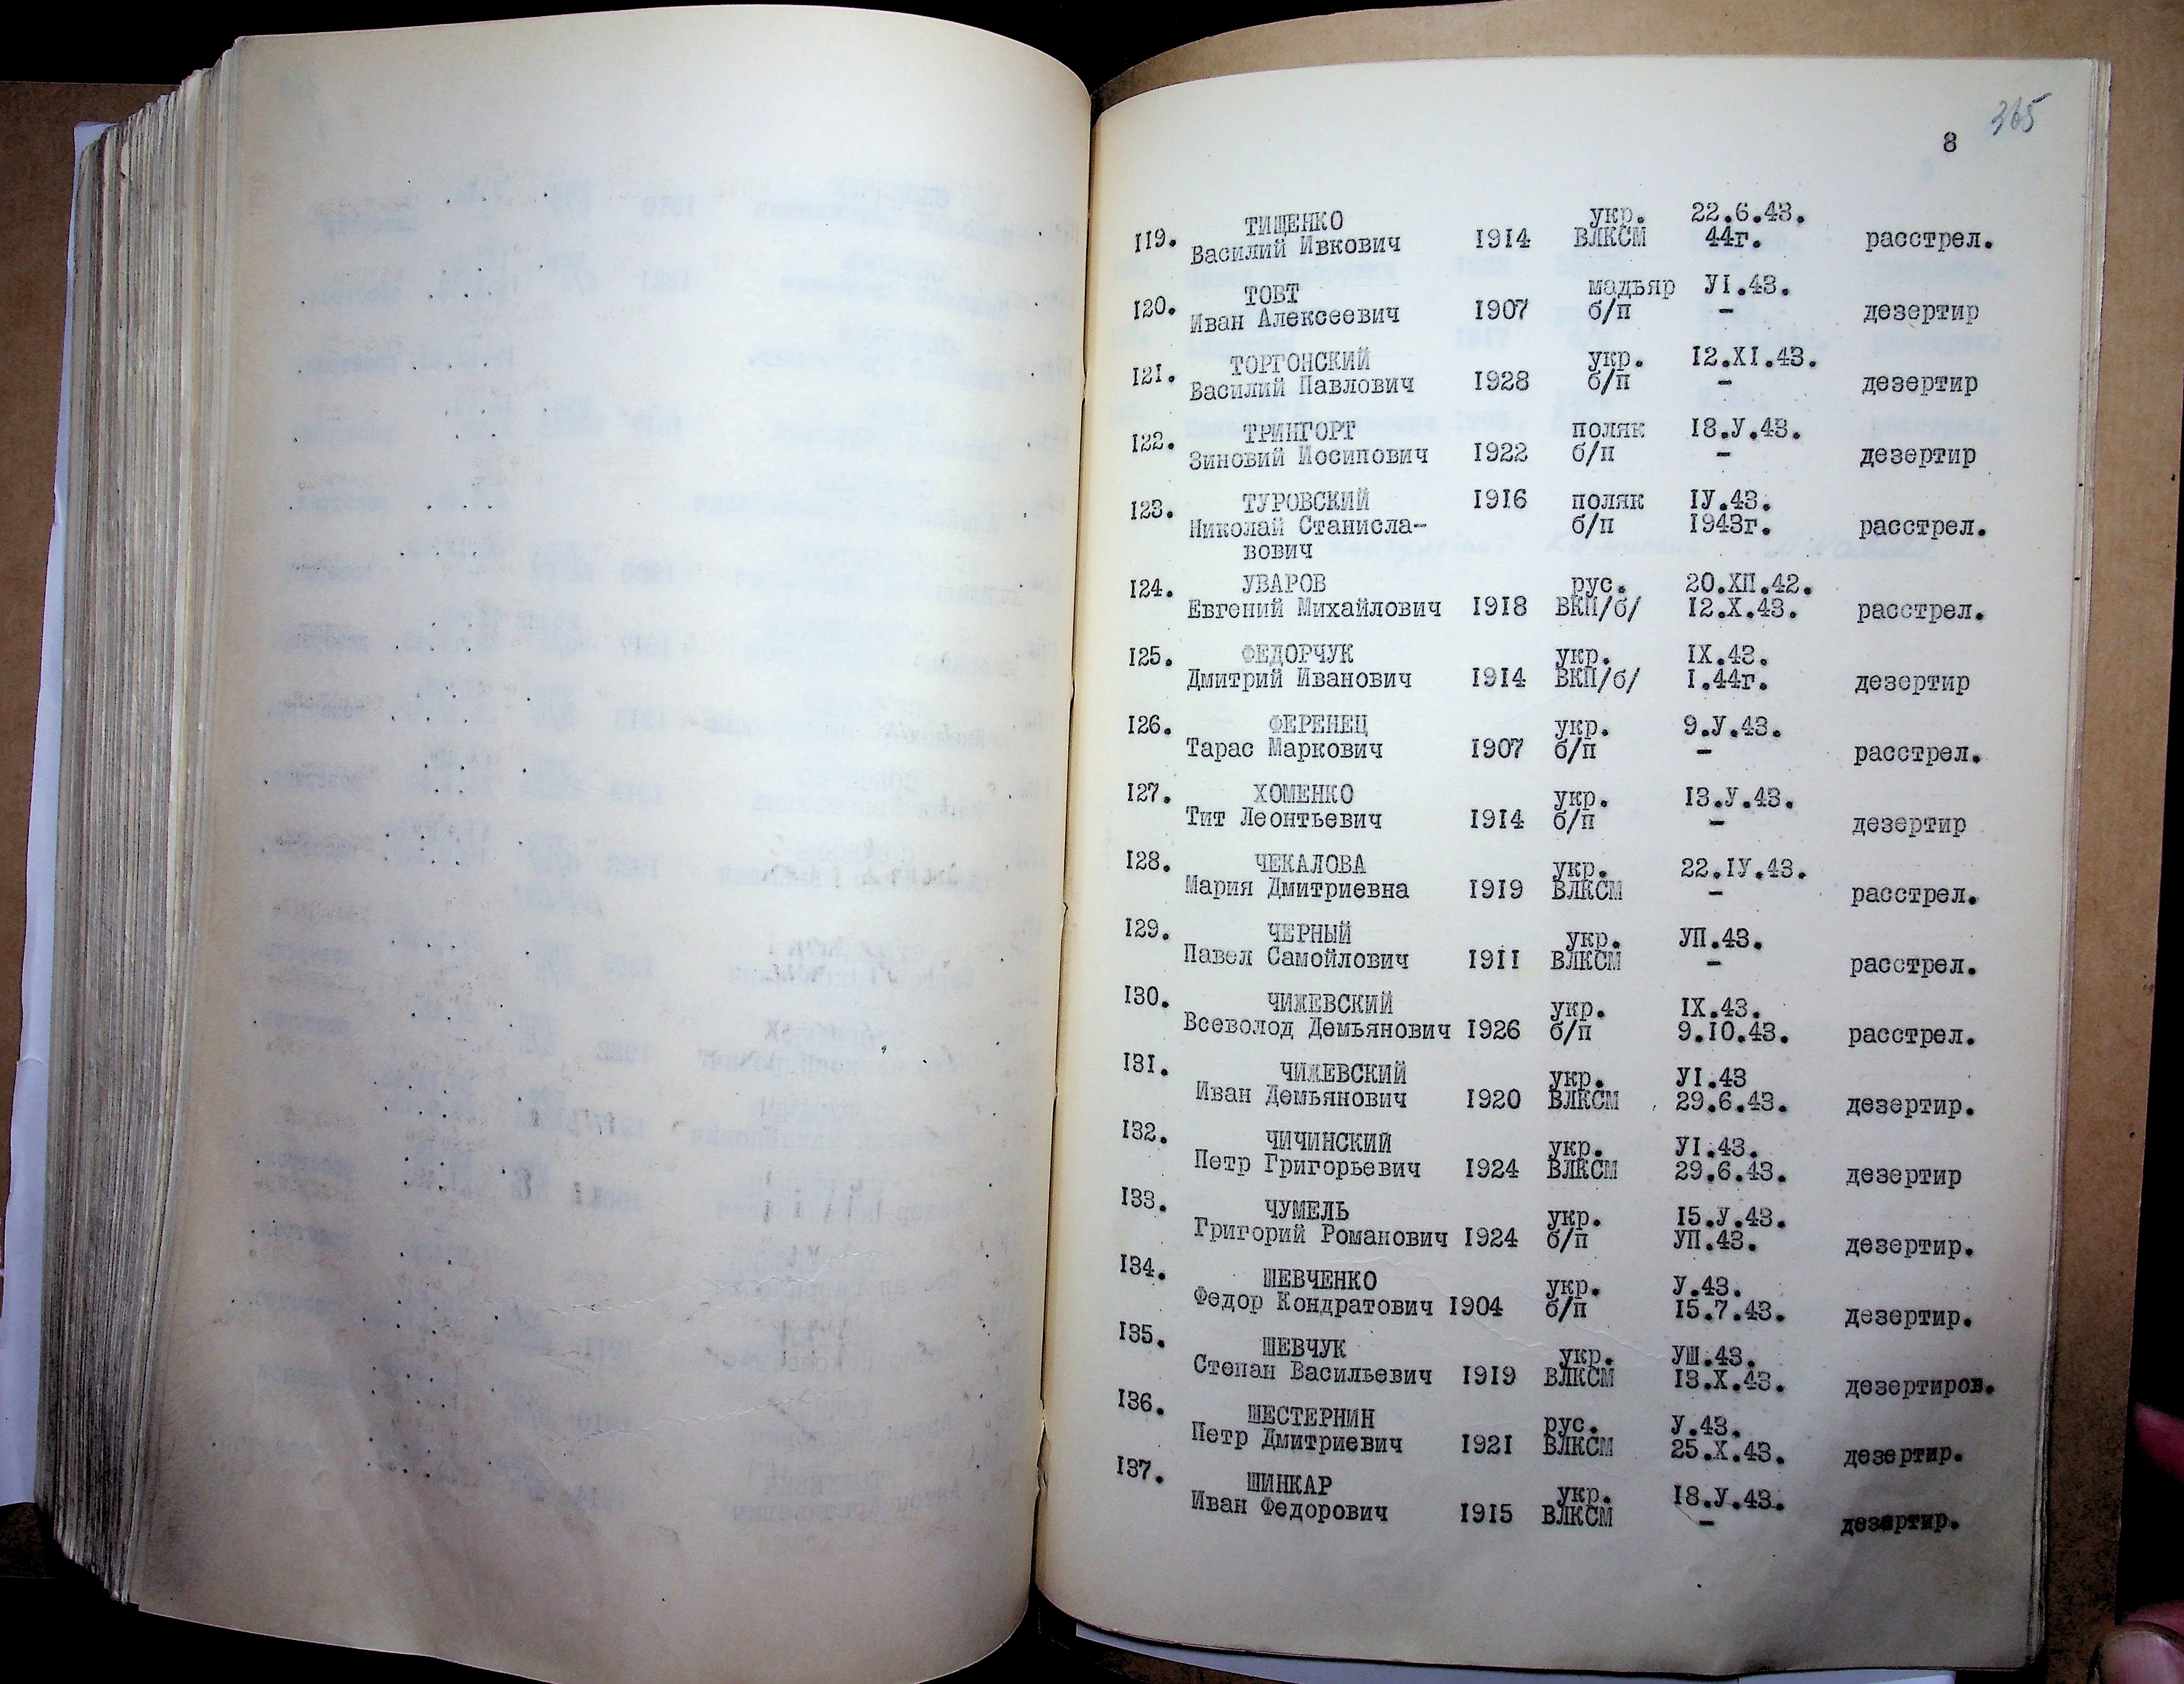 365
8
119. ТИЩЕНКО укр. 22.6.43.
Василий Ивкович 1914 ВЛКСМ 44г. расстрел.
120. ТОВТ мадьяр УI.43.
Иван Алексеевич 1907 б/п - дезертир
121. ТОРГОНСКИЙ укр. I2.XI.43.
Василий Павлович 1928 б/п - дезертир
122. ТРИНГОРТ поляк I8.У.43.
Зиновий Иосипович 1922 б/п - дезертир
123. ТУРОВСКИЙ 1916 поляк IУ.43.
Николай Станисла- б/п 1943г. расстрел.
вович
124. УВАРОВ рус. 20.ХП.42.
Евгений Михайлович 1918 ВКП/б/ I2.Х.43. расстрел.
125. ФЕДОРЧУК укр. IX.43.
Дмитрий Иванович 1914 ВКП/б/ I.44г. дезертир
126. ФЕРЕНЕЦ укр. 9.У.43.
Тарас Маркович 1907 б/п - расстрел.
127. ХОМЕНКО укр. I3.У.43.
Тит Леонтьевич 1914 б/п - дезертир
128. ЧЕКАЛОВА укр. 22.IУ.43.
Мария Дмитриевна 1919 ВЛКСМ - расстрел.
129. ЧЕРНЫЙ укр. УП.43.
Павел Самойлович 1911 ВЛКСМ - расстрел.
130. ЧИЖЕВСКИЙ укр. IX.43.
Всеволод Демьянович 1926 б/п 9.10.43. расстрел.
131. ЧИЖЕВСКИЙ укр. УI.43
Иван Демьянович 1920 ВЛКСМ 29.6.43. дезертир.
132. ЧИЧИНСКИЙ укр. УI.43.
Петр Григорьевич 1924 ВЛКСМ 29.6.43. дезертир
133. ЧУМЕЛЬ укр. I5.У.43.
Григорий Романович 1924 б/п УП.43. дезертир.
134. ШЕВЧЕНКО укр. У.43.
Федор Кондратович 1904 б/п I5.7.43. дезертир.
135. ШЕВЧУК укр. УШ.43.
Степан Васильевич 1919 ВЛКСМ I3.Х.43. дезертиров.
136. ШЕСТЕРНИН рус. У.43.
Петр Дмитриевич 1921 ВЛКСМ 25.Х.43. дезертир.
137. ШИНКАР укр. I8.У.43.
Иван Федорович 1915 ВЛКСМ - дезертир.